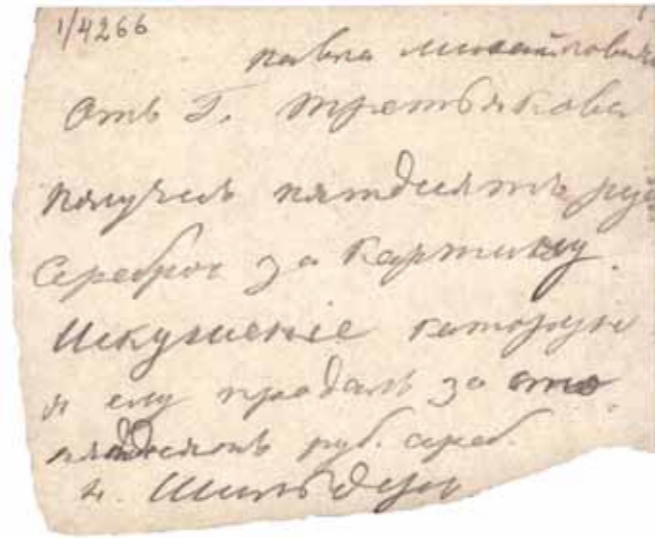 1/4266
павла михайловича
Отъ Г. третьякова
получилъ пятдисятъ руб
Серебром за Картину
Искушение каторую
я ему продалъ за сто
пятдисятъ руб. сереб.
Н. Шильдеръ